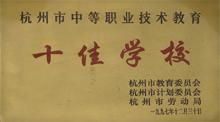 杭州市中等职业技术教育
十佳学校
杭州市教育委员会
杭州市计划委员会
杭州市劳动局
一九九七年十二月三十日